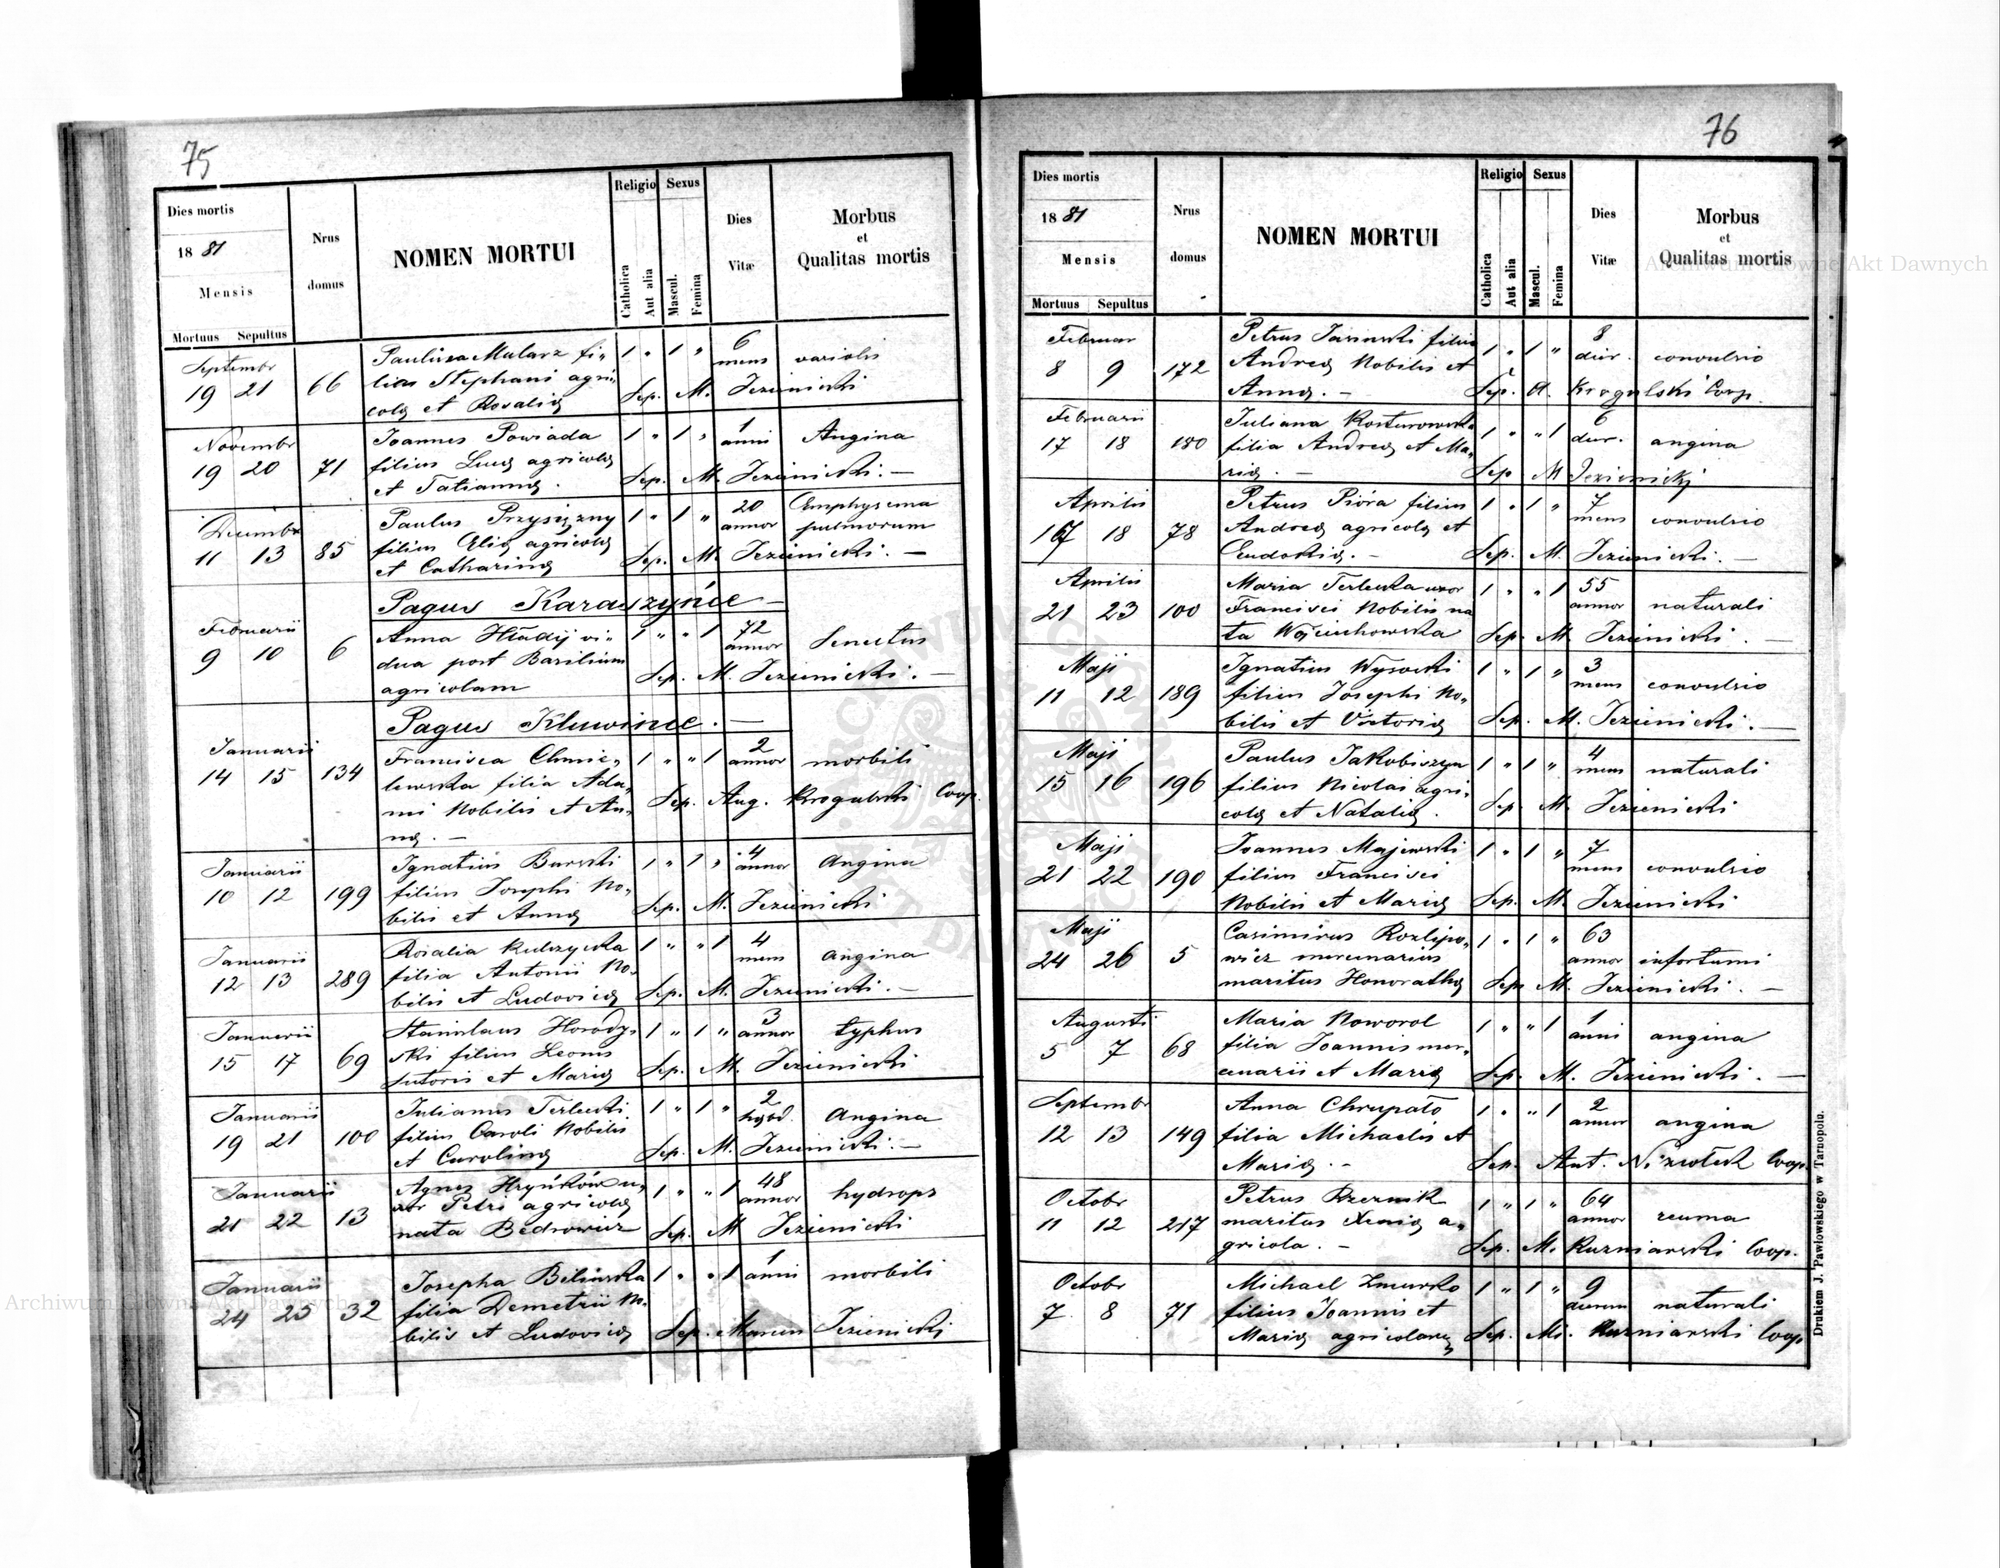 75
Dies mortis
1881
Mensis
Mortuus Sepultus
Nrus domus
NOMEN MORTUI
Religio
Catholica
Aut alia
Sexus
Mascul.
Femina
Dies Vitæ
Morbus et Qualitas mortis
Septembr
19 21 66
Mularz fi-
lius Stephani agri-
colæ et Rosaliæ
1 " 1 " 6 mens variolis
Sep. M. Jezienicki
Novembr
19 20 71
Joannes Powiada
filius Lucæ agricolæ
et Tatiannæ.
1 " 1 " 1 anni Angina
Sep. M. Jezienicki. —
Decembr
11 13 85
Paulus Przysiężny
filius Eliæ agricolæ
et Catharinæ
1 " 1 " 20 annor Emphysema
pulmorum
Sep. M. Jezienicki. —
Pagus Karaszyńce —
Februarii
9 10 6
Anna Hładij vi-
dua post Basilium
agricolam
1 " " 1 72 annor Senectus
Sep. M. Jezienicki. —
Pagus Kluwince. —
Januarii
14 15 134
Francisca Chmie-
lewska filia Ada-
mi Nobilis et An-
næ. —
1 " " 1 2 annor morbili
Sep. Aug. Krogulski Coop.
Januarii
10 12 199
Ignatius Burski
filius Josephi No-
bilis et Annæ
1 " 1 " 4 annor Angina
Sep. M. Jezienicki
Januarii
12 13 289
Rosalia Kulczycka
filia Antonii No-
bilis et Ludovicæ
1 " " 1 4 mens angina
Sep. M. Jezienicki. —
Januarii
15 17 69
Stanislaus Horodys-
ki filius Leonis
sutoris et Mariæ
1 " 1 " 3 annor typhus
Sep. M. Jezienicki
Januarii
19 21 100
Julianus Terlecki
filius Caroli Nobilis
et Carolinæ
1 " 1 " 2 hebd. Angina
Sep. M. Jezienicki. —
Januarii
21 22 13
Agnes Hryńków u-
xor Petri agricolæ
nata Bedrowicz
1 " " 1 48 annor hydrops
Sep. M Jezienicki
Januarii
24 25 32
Josepha Bilińska
filia Demetrii No-
bilis et Ludovicæ
1 " " 1 1 anni morbili
Sep. Marcus Jezienicki
76
Dies mortis
1881
Mensis
Mortuus Sepultus
Nrus domus
NOMEN MORTUI
Religio
Catholica
Aut alia
Sexus
Mascul.
Femina
Dies Vitæ
Morbus et Qualitas mortis
Februar
8 9 172
Petrus Jasinski filius
Andreæ Nobilis et
Annæ. —
1 " 1 " 8 dier. convulsio
Sep. A. Krogulski Coop.
Februarii
17 18 180
Juliana
filia Andreæ et Ma-
riæ. —
1 " " 1 6 dier. angina
Sep M Jezienicki
Aprilis
18 78
Petrus Pióra filius
Andreæ agricolæ et
Eudokiæ. —
1 " 1 " 7 mens convulsio
Sep. M. Jezienicki. —
Aprilis
21 23 100
Maria Terlecka uxor
Francisci Nobilis na
ta Wojciechowska
1 " " 1 55 annor naturali
Sep. M. Jezienicki. —
Maji
11 12 189
Ignatius Wysocki
filius Josephi No-
bilis et Victoriæ
1 " 1 " 3 mens convulsio
Sep. M. Jezienicki. —
Maji
15 16 196
Paulus Jakobiszyn
filius Nicolai agri-
colæ et Nataliæ.
1 " 1 " 4 mens naturali
Sep. M. Jezienicki
Maji
21 22 190
Joannes Majewski
filius Francisci
Nobilis et Mariæ
1 " 1 " 7 mens convulsio
Sep. M. Jezienicki
Maji
24 26 5
Casimirus Rozlipo-
wicz mercenarius
maritus Honorathæ
1 " 1 " 63 annor infortuni
Sep. M. Jezienicki. —
Augusti
5 7 68
Maria Noworol
filia Joannis mer-
cenarii et Mariæ
1 " " 1 1 anni angina
Sep. M. Jezienicki. —
Septembr
12 13 149
Anna Chrupało
filia Michaelis et
Mariæ. —
1 " " 1 2 annor angina
Sep. Ant. Coop.
Octobr
11 12 217
Petrus
maritus Xeniæ a-
gricola. —
1 " 1 " 64 annor reuma
Sep. M. Kuzniarski Coop.
Octobr
7 8 71
Michael Zmurko
filius Joannis et
Mariæ agricolarum
1 " 1 " 9 dierum naturali
Sep. Mi. Kuzniarski Coop
Drukiem J. Pawłowskiego w Tarnopolu.
Archiwum Główne Akt Dawnych
Archiwum Główne Akt Dawnych
ARCHIWUM GŁÓWNE AKT DAWNYCH